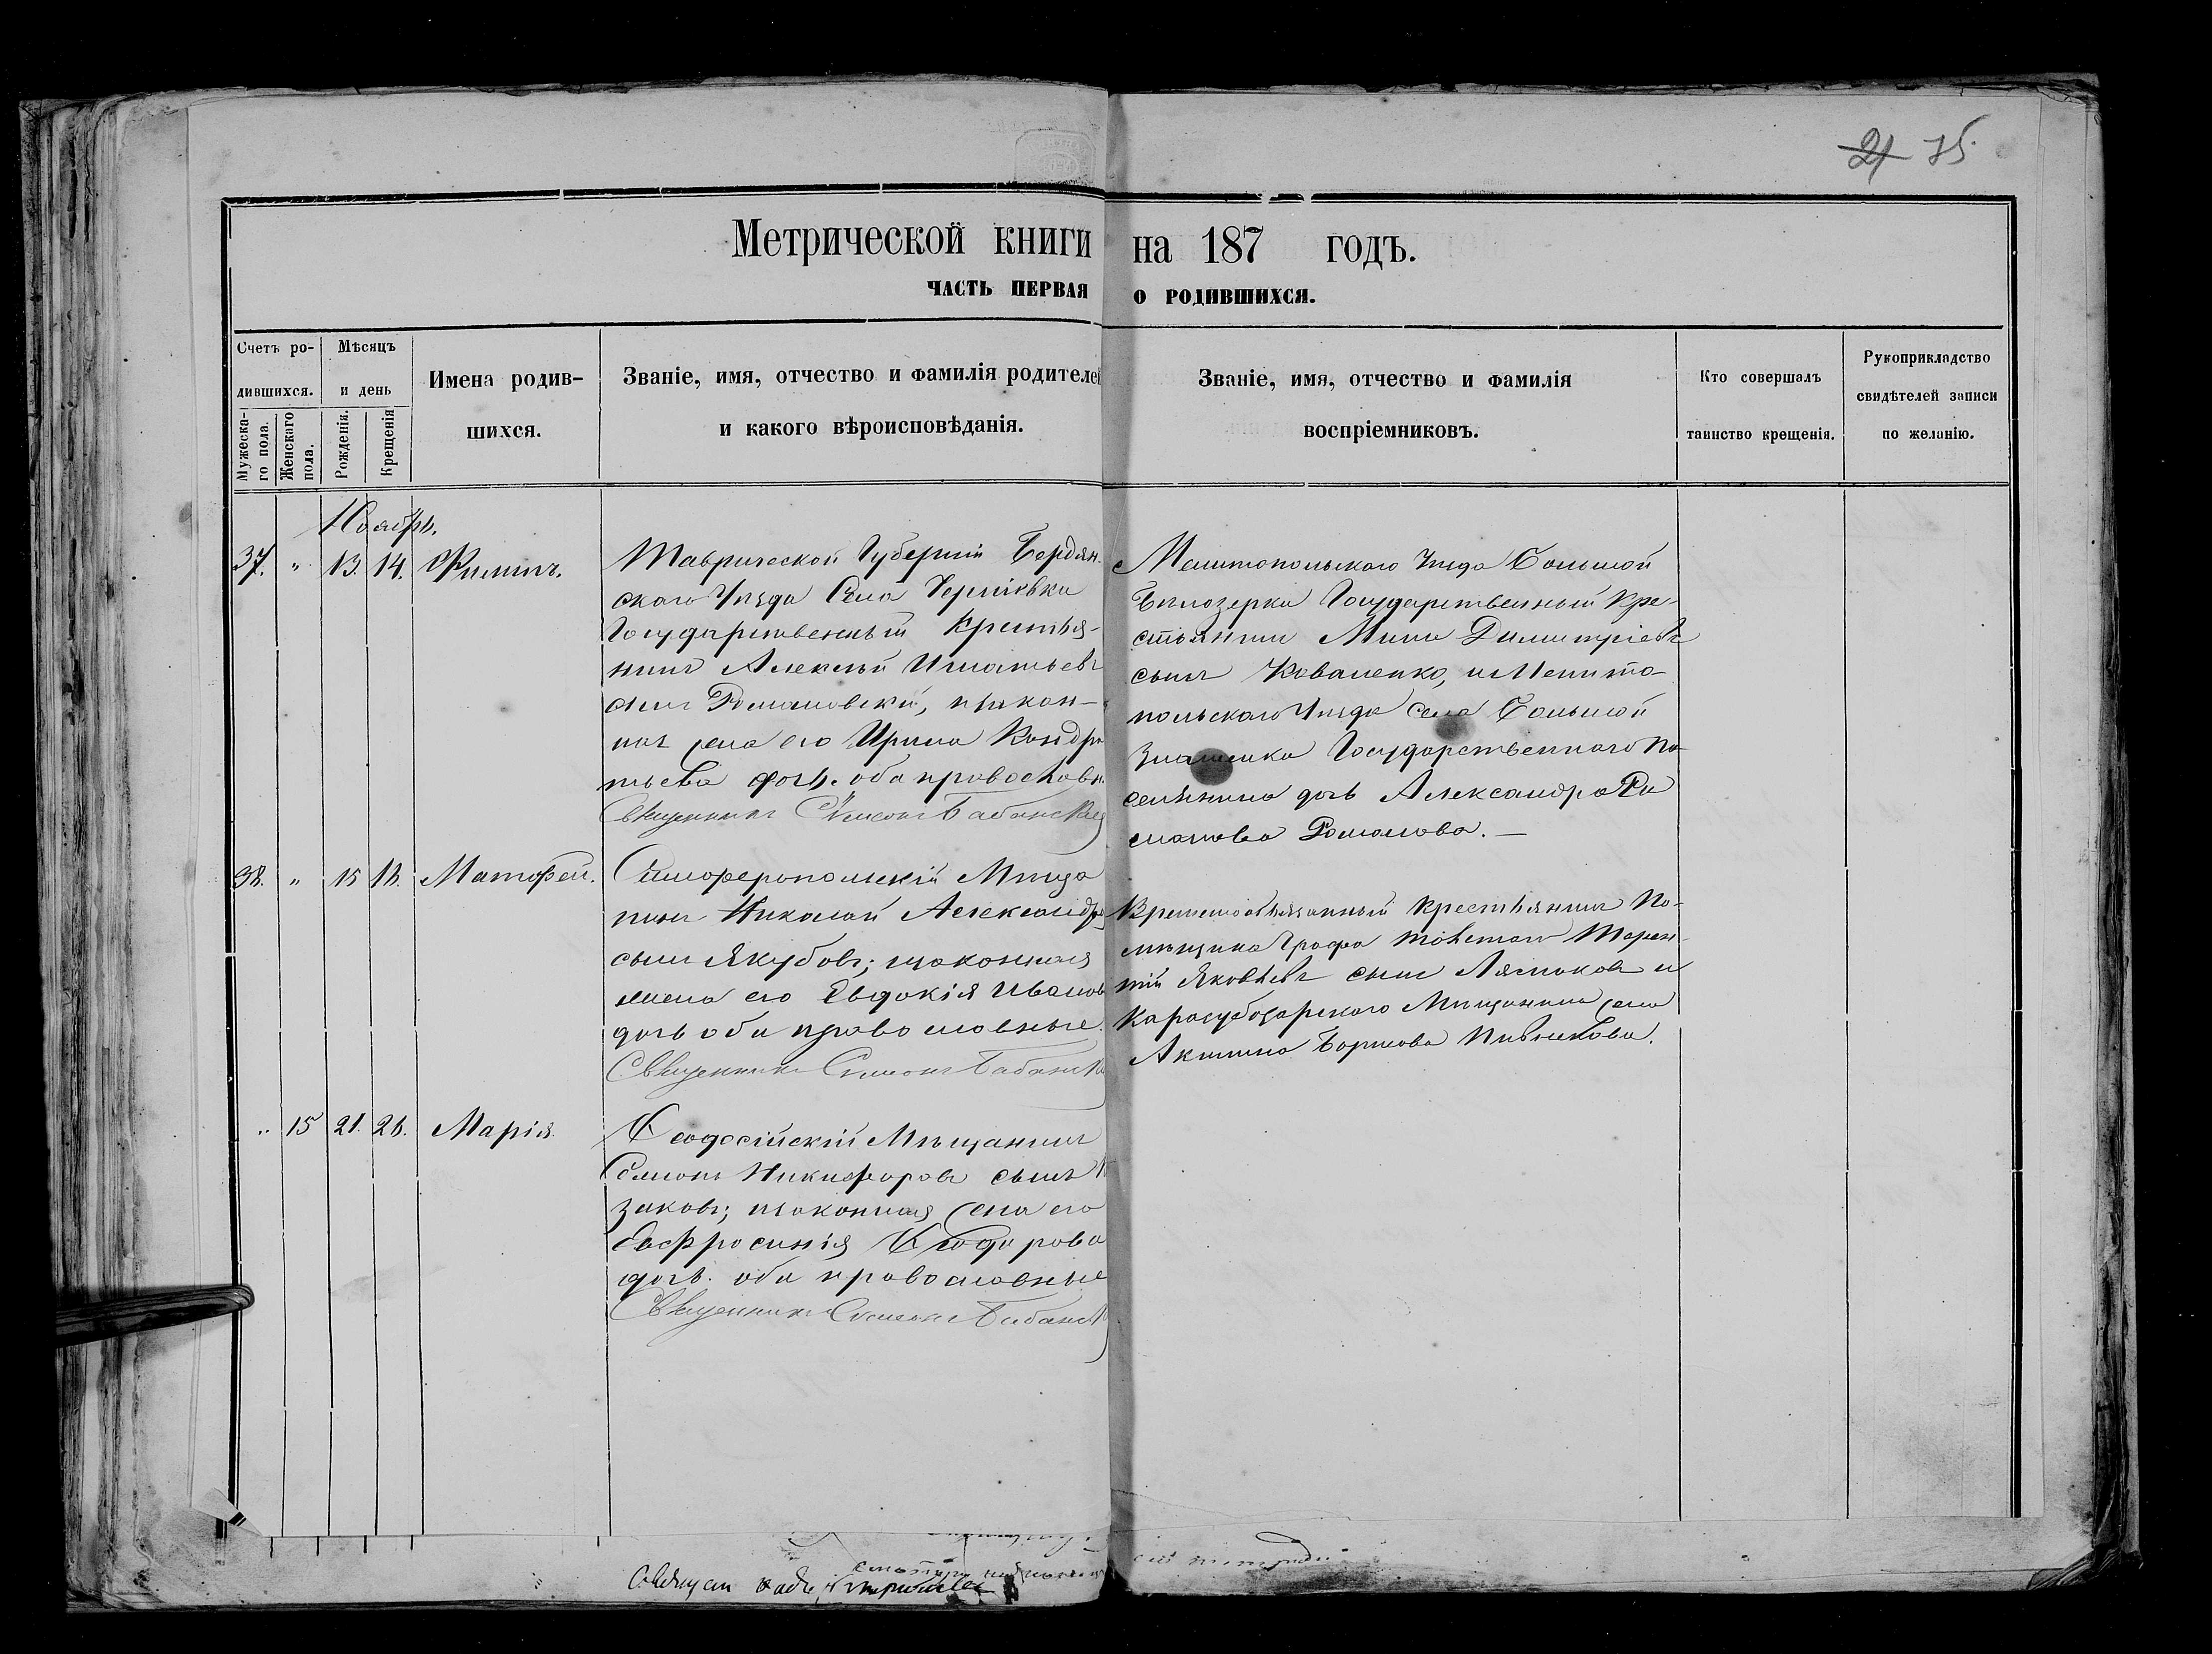 21 75
Метрической книги на 187 годъ.
ЧАСТЬ ПЕРВАЯ О РОДИВШИХСЯ.
Счетъ ро-
дившихся.
Мужеска-
го пола.
Женскаго
пола.
Мѣсяцъ
и день
Рожденія.
Крещенія
Имена родив-
шихся.
Званіе, имя, отчество и фамилія родителей
и какого вѣроисповѣданія.
Званіе, имя, отчество и фамилія
воспріемниковъ.
Кто совершалъ
таинство крещенія.
Рукоприкладство
свидѣтелей записи
по желанію.
Ноябрь.
37. " 13. 14. Филипъ.
Таврической Губерніи Бердян-
скаго Уѣзда Села Черниговка
Государственный Крестья-
нинъ Алексѣй Игнатьевъ
сынъ Романовскій, и закон-
ная жена его Ирина Кондра
тьева дочь. оба православн.
Священникъ Симеонъ Бабанскій
Мелитопольскаго Уѣзда Большой
Бѣлозерки Государственный Кре-
стьянинъ Димитріевъ
сынъ Коваленко, и Мелито-
польскаго Уѣзда Села Большой
Знаменки Государственнаго По-
селянина дочь Александра
Романова.
38. " 15 18. Матфей.
Симферопольскій Мѣща
нинъ Николай Александро
сынъ Якубовъ; и законная
жена его Евдокія Иванов
дочь оба православные.
Священникъ Симеонъ Бабанск
Временнообязанный Крестьянинъ По-
мѣщика Графа Терен-
тій Яковлевъ сынъ и
Карасубазарскаго Мѣщанина жена
Акилина Борисова
" 15 21. 26. Марія.
Ѳеодосійскій Мѣщанинъ
Симонъ Никифоровъ сынъ
заковъ; и законная жена его
Евфросинія Ѳеодорова
дочь. оба православные
Священникъ Симеонъ Бабанск